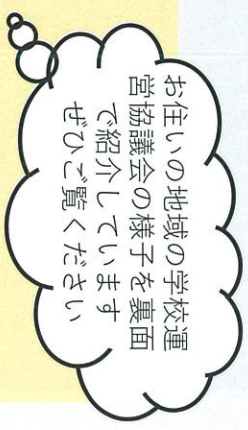 お住いの地域の学校運
営協議会の様子を裏面
で紹介しています
ぜひご覧ください